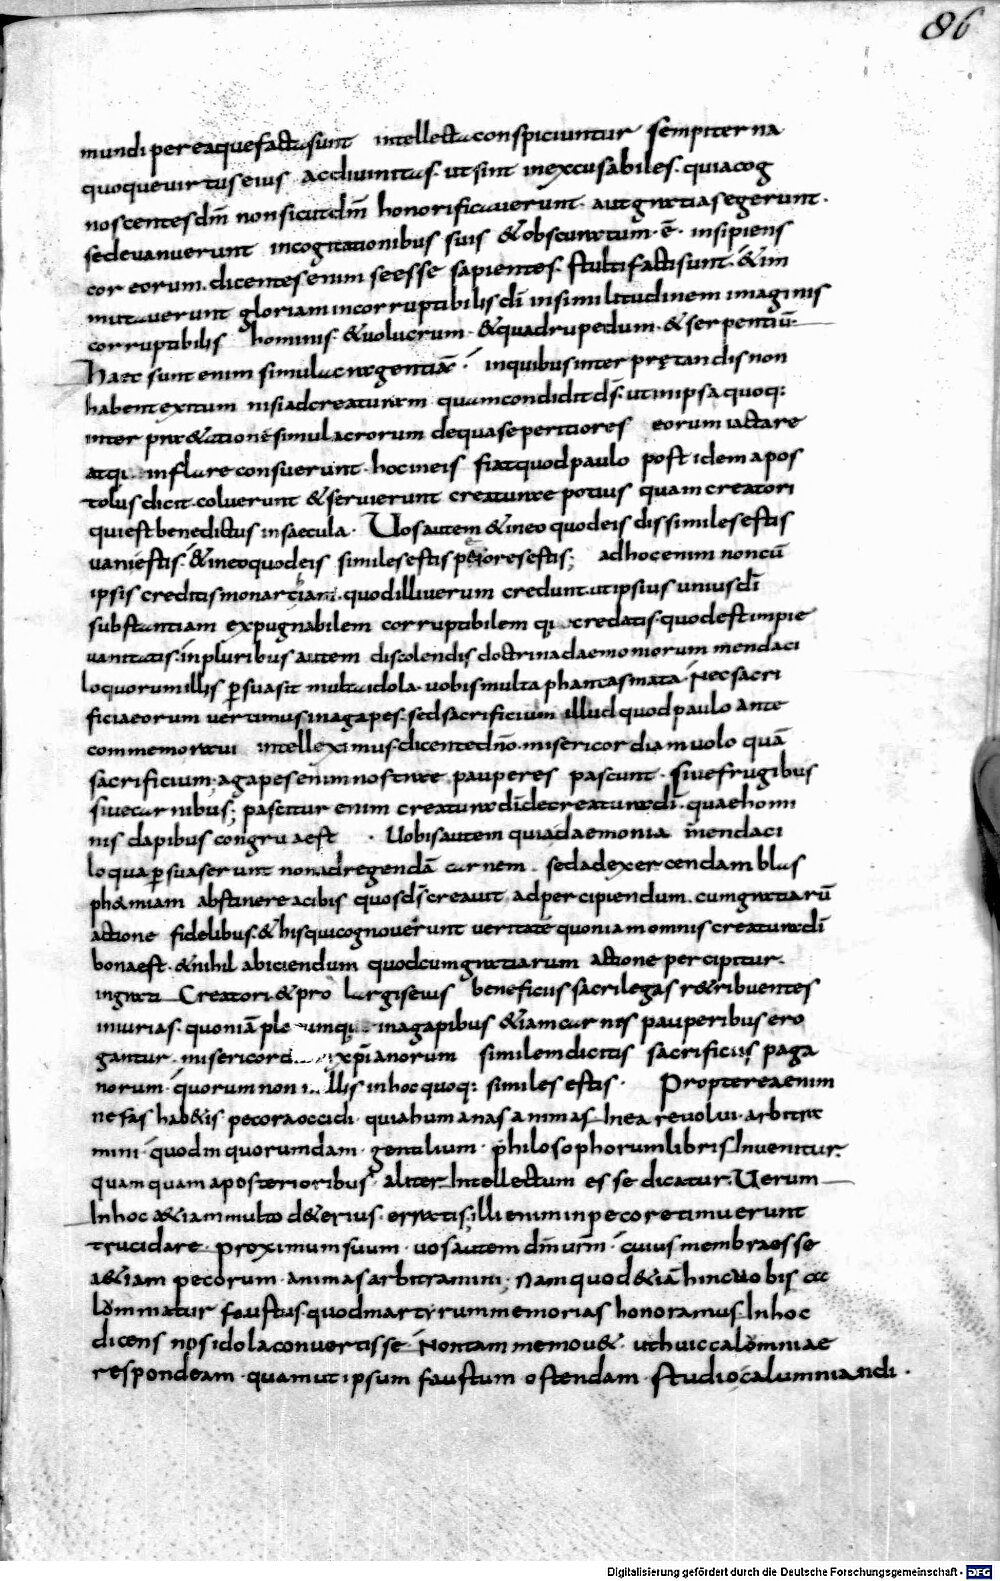 86
mundi per ea que facta sunt intellecta conspiciuntur sempiterna
quoque virtus eius ac divinitas. ut sint inexcusabiles. quia cog
noscentes dm̄ non sicut dm̄ honorificaverunt. aut gratias egerunt.
sed evanuerunt in cogitationibus suis & obscuratum. ē. insipiens
cor eorum. dicentes enim se esse sapientes. stulti facti sunt. & im
mutaverunt gloriam incorruptibilis dī in similitudinem imaginis
corruptibilis hominis. & volucrum. & quadrupedum. & serpentiū.
Haec sunt enim simulacra gentiū. in quibus interprętandis non
habent exitum nisi ad creaturam quam condidit ds̄. ut in ipsa quoq:
interpraetatione simulacrorum de qua se peritiores eorum iactare
atq; inflare consuerunt. hoc in eis fiat quod paulo post idem apos
tolus dicit. coluerunt & servierunt creaturae potius quam creatori
qui est benedictus in saecula. Vos autem & in eo quo de is dissimiles estis
vani estis. & in eo quo de is similes estis peiores estis; ad hoc enim non cū
ipsis creditis monarchiam. quod illi verum credunt. ut ipsius unius dī
substantiam expugnabilem corruptibilem q; credatis. quod est impie
vanitatis. in pluribus autem dis colendis doctrina daemoniorum mendaci
loquorum illis p̱suasit multa idola. vobis multa phantasmata. Nec sacri
ficia eorum vertimus in agapes. sed sacrificium illud quod paulo ante
commemoravi intelleximus. dicente dn̄o. misericordiam volo quā
sacrificium. agapes enim nostrae pauperes pascunt. sive frugibus
sive carnibus; pascitur enim creatura dī de creatura dī. quae homi
nis dapibus congrua est. Vobis autem quia daemonia mendaci
loqua p̱suaserunt non ad regendā carnem. sed ad exercendam blas
phemiam abstinere a cibis quos ds̄ creavit ad percipiendum. cum gratiarū
actione fidelibus. & his qui cognoverunt veritatē quoniam omnis creatura dī
bona est. & nihil abiciendum quod cum gratiarum actione percipitur.
ingrati Creatori. & pro largis eius beneficiis sacrilegas retribuentes
iniurias. quoniā ple umq; in agapibus & iam carnes pauperibus ero
gantur. misericord xp̄ianorum similem dicitis sacrificiis paga
norum. quorum non llis in hoc quoq: similes estis. Propterea enim
nefas habetis pecora occidi. quia humanas animas In ea revolvi. arbitra
mini. quod in quorumdam. gentilium. philosophorum libris Invenitur.
quamquam a posterioribus. aliter Intellectum esse dicatur. Verum
In hoc & iam multo deterius. erratis. illi enim in pecore timuerunt
trucidare. proximum suum. vos autem dm̄ vrm̄. cuius membra esse
& iam pecorum. animas arbitramini. Nam quod & iā hinc vobis ca
lomniatur faustus. quod martyrum memorias honoramus. In hoc
dicens nos idola convertisse. Non tam me movet. ut huic calomniae
respondeam. quam ut ipsum faustum ostendam. studio calumniandi.
Digitalisierung gefördert durch die Deutsche Forschungsgemeinschaft - DFG